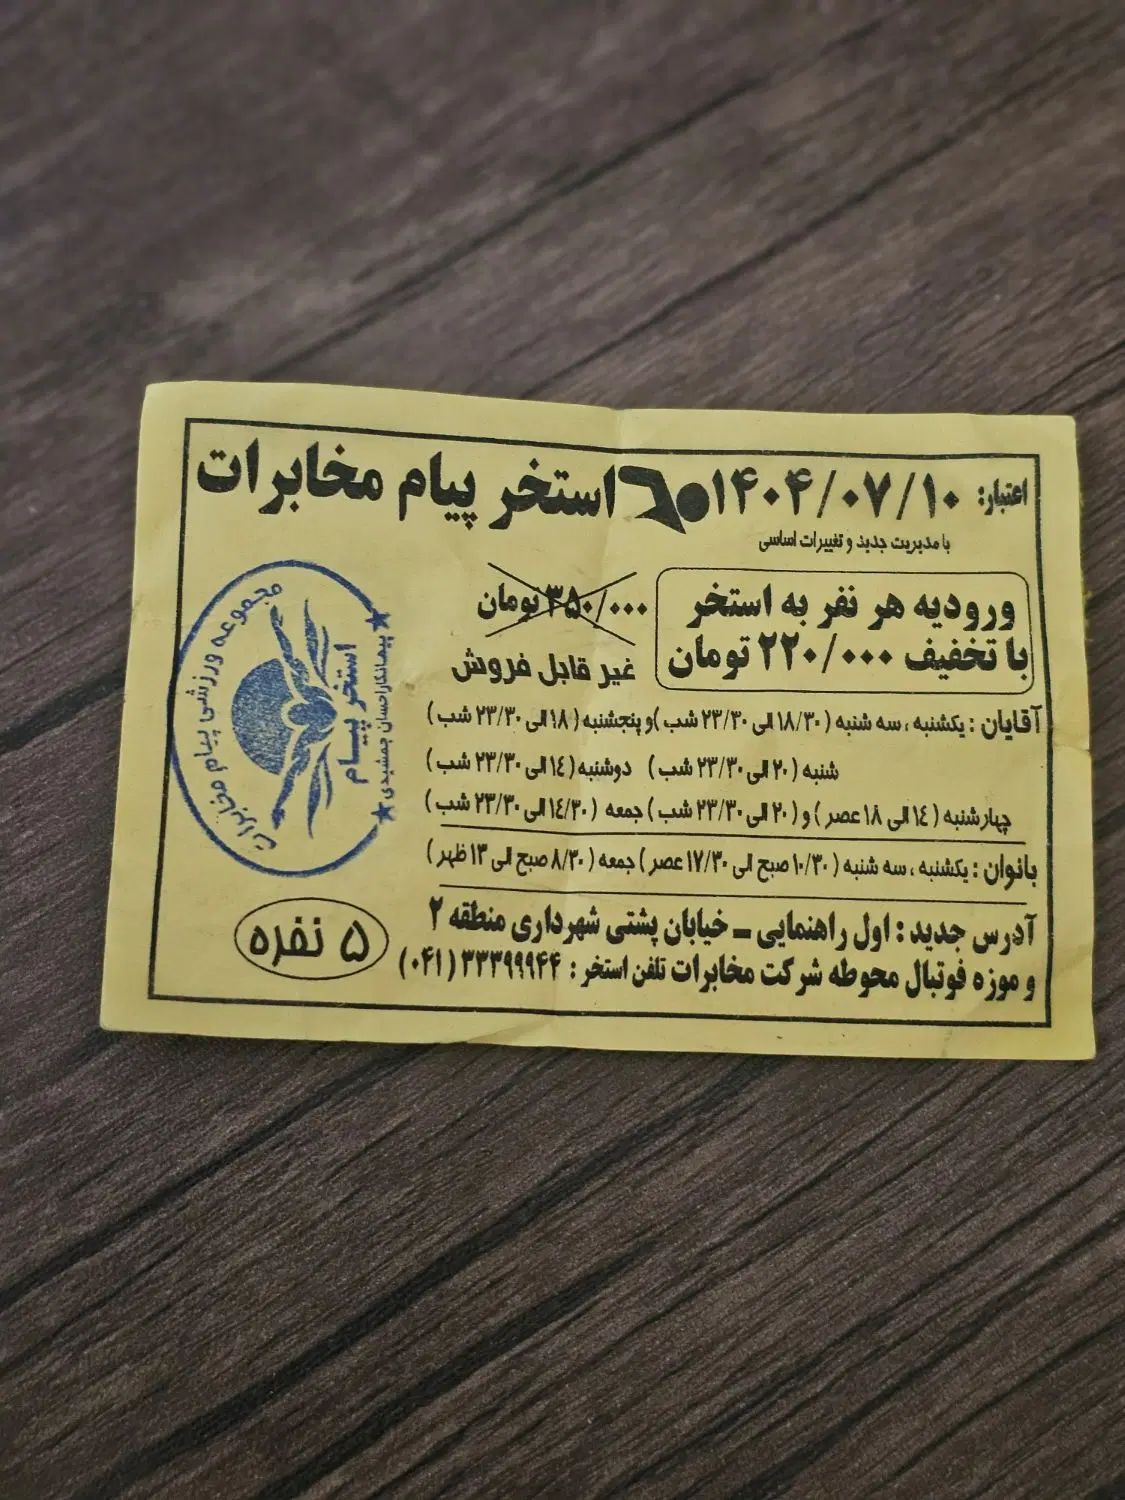 اعتبار: ۱۴۰۴/۰۷/۱۰ استخر پیام مخابرات
با مدیریت جدید و تغییرات اساسی
ورودیه هر نفر به استخر
با تخفیف ۲۲۰/۰۰۰ تومان
۳۵۰/۰۰۰ تومان
غیر قابل فروش
آقایان : یکشنبه ، سه شنبه ( ۱۸/۳۰ الی ۲۳/۳۰ شب )و پنجشنبه ( ۱۸ الی ۲۳/۳۰ شب )
شنبه ( ۲۰ الی ۲۳/۳۰ شب ) دوشنبه ( ۱۴ الی ۲۳/۳۰ شب )
چهارشنبه ( ۱۴ الی ۱۸ عصر ) و ( ۲۰ الی ۲۳/۳۰ شب ) جمعه ( ۱۴/۳۰ الی ۲۳/۳۰ شب )
بانوان : یکشنبه ، سه شنبه ( ۱۰/۳۰ صبح الی ۱۷/۳۰ عصر ) جمعه ( ۸/۳۰ صبح الی ۱۳ ظهر )
آدرس جدید : اول راهنمایی ــ خیابان پشتی شهرداری منطقه ۲
و موزه فوتبال محوطه شرکت مخابرات تلفن استخر : ۳۳۳۹۹۹۴۴ (۰۴۱)
۵ نفره
مجموعه ورزشی پیام مخابرات
استخر پیام
پیمانکار احسان جمشیدی